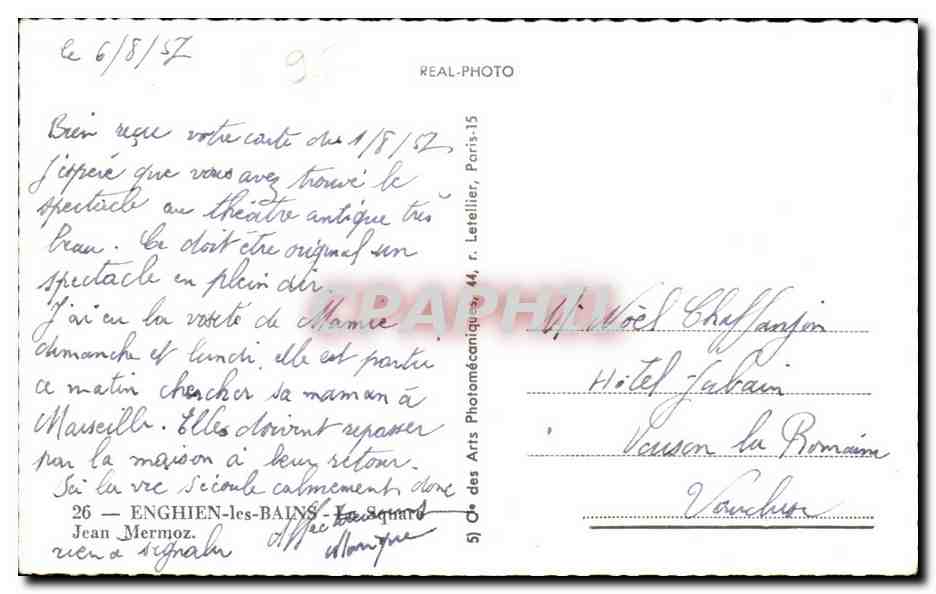 le 6/8/57
REAL-PHOTO
Bien reçue votre carte du 1/8/57,
J'espère que vous avez trouvé le
spectacle au théâtre antique très
beau. Ce doit être original un
spectacle en plein air.
J'ai eu la visite de Mamie
dimanche et lundi, elle est partie
ce matin chercher sa maman à
Marseille. Elles doivent repasser
par la maison à leur retour.
Ici la vie s'écoule calmement donc
26 — ENGHIEN-les-BAINS - Le Square
Jean Mermoz.
rien à signaler
Affectueusement
Monique
5) des Arts Photomécaniques, 44, r. Letellier, Paris-15
CPAPHIL
M. Noël Chaffanjon
Hôtel
Vaison la Romaine
Vaucluse